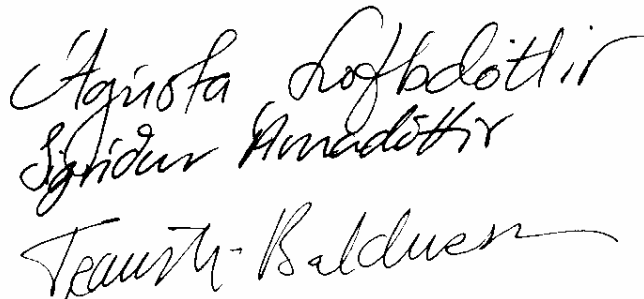 Ágústa Loftsdóttir
Sigríður Arnadóttir
Trausti Baldurss